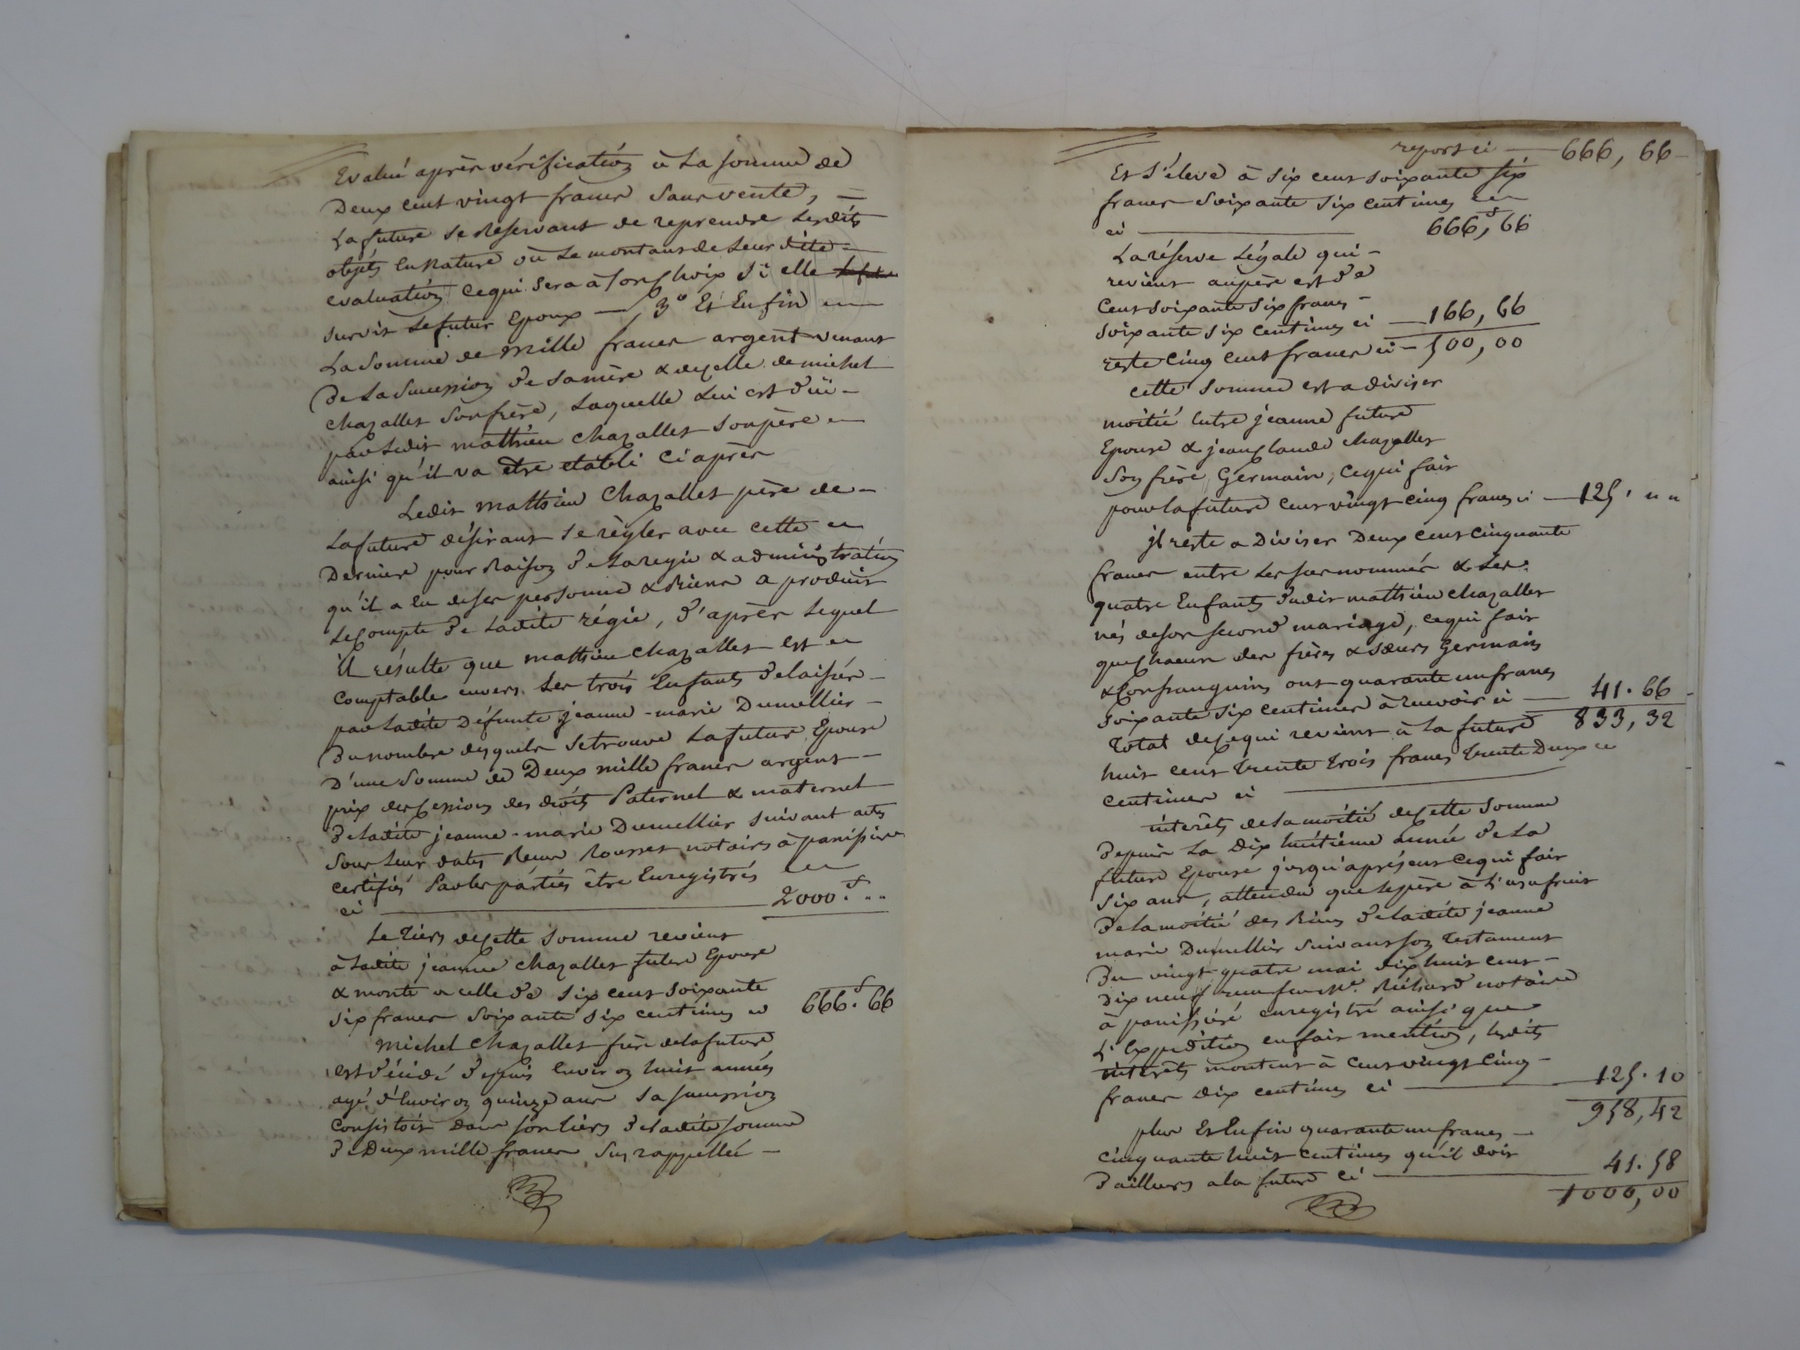 Evalué après vérification à la somme de
Deux cent vingt francs sans vente, =
La future se Réservant de reprendre lesdits
objets En Nature ou Le montant de Leur dite =
evaluation, ce qui sera à son choix si elle
survit Le futur Epoux — 3° Et Enfin
La Somme de Mille francs argent venant
De La Succession de sa mère & de celle de michel
Chazallet son frère, Laquelle Lui est düe -
par Ledit mathieu Chazallet son père
ainsi qu'il va être établi ci après
Ledit mathieu Chazallet père de -
La future désirant se règler avec cette
Derniere pour Raison de La regie & administration
qu'il a Eu de ses personne & Biens a produit
Le Compte de Ladite régie, d'après Lequel
il résulte que mathieu Chazallet est
Comptable envers Les trois Enfants delaissés -
par Ladite Défunte jeanne-marie Dumellier -
Du nombre desquels se trouve La future Epouse
D'une Somme de Deux mille francs argent -
prix des Cessions des droits Paternel & maternel
de Ladite jeanne-marie Dumellier suivant actes
sous Leur dates Reçus Rousset notaires à panissière
certifiés Par Les parties être Enregistrés
ci — 2000.f ..
Le Tiers de cette Somme revient
à Ladite jeanne Chazallet future Epouse
& monte a celle de six cent soixante
six francs soixante six centimes ci 666.f 66
Michel Chazallet frère de la future
est décédé depuis Environ huit années
agé d'Environ quinze ans sa succession
Consistoit Dans son tiers de Ladite somme
de Deux mille francs sus rappellée -
report ci — 666, 66
Et s'éleve à six cent soixante six
francs soixante six centimes
ci — 666,f 66
La réserve Légale qui -
revient au père est de
Cent soixante six francs -
soixante six centimes ci — 166, 66
reste Cinq cent francs ci — 500, 00
cette Somme est a diviser
moitié Entre jeanne future
Epouse & jean Claude Chazallet
Son frère Germain, ce qui fait
pour la future cent vingt cinq francs ci — 125. " "
il reste a Diviser Deux cent cinquante
francs entre Les susnommés & Les
quatre Enfants dudit mathieu Chazallet
nés de son second mariage, ce qui fait
que chacun des frères & sœurs Germains
& Consanguins ont quarante un francs
soixante six centimes à recevoir ci — 41. 66
Total de ce qui revient à La future 833, 32
huit cent trente trois francs trente Deux
centimes ci
intérêts de la moitié de cette Somme
depuis La Dix huitième année de La
future Epouse jusqu'aprésent ce qui fait
six ans, attendu que Le père à L'usufruit
de La moitié des Biens de Ladite jeanne
marie Dumellier suivant son Testament
Du vingt quatre mai dix huit cent -
Dix neuf reçu par Me. Richard notaire
à panissière enregistré ainsi que
L'Expedition en fait mention, Lesdits
intérêts montent à Cent vingt Cinq -
francs dix centimes ci — 125. 10
958, 42
plus Et Enfin quarante un francs -
Cinquante huit centimes qu'il doit
d'ailleurs a la future ci — 41. 58
1000, 00